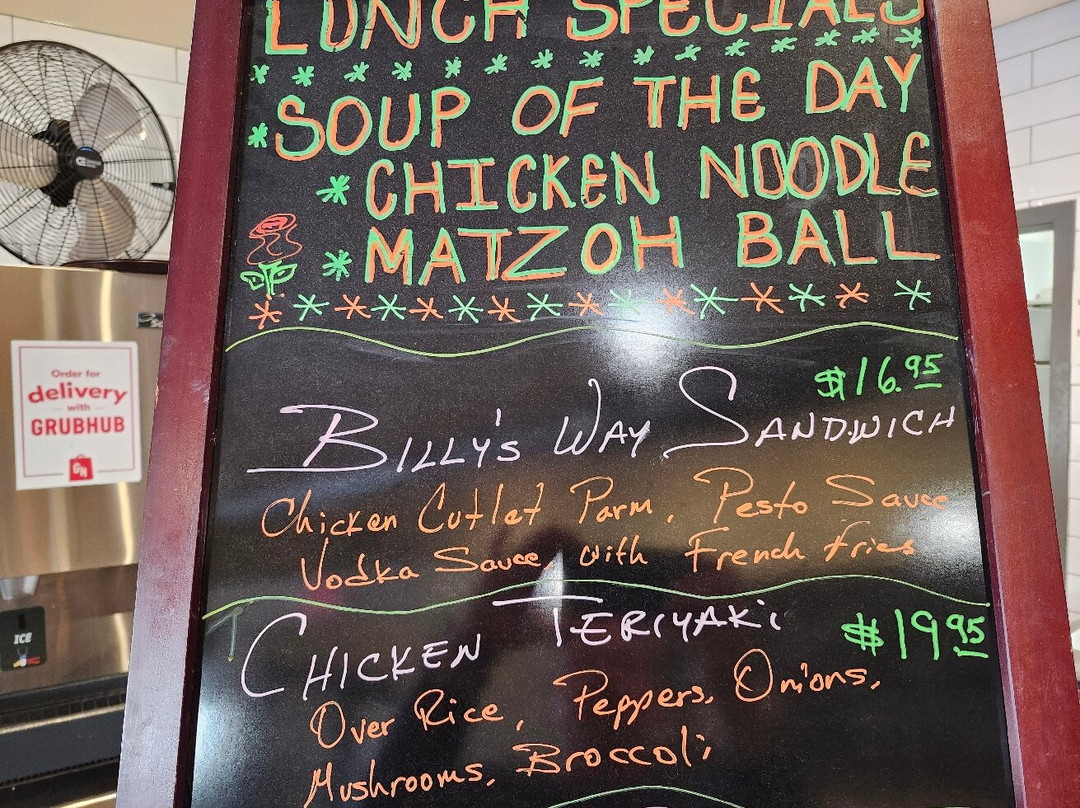 LUNCH SPECIALS
SOUP OF THE DAY
* CHICKEN NOODLE
* MATZOH BALL
$16.95
BILLY'S WAY SANDWICH
Chicken Cutlet Parm, Pesto Sauce
Vodka Sauce, with French fries
CHICKEN TERIYAKi
$19.95
Over Rice, Peppers, Onions,
Mushrooms, Broccoli
Order for
delivery
with
GRUBHUB
GH
ICE